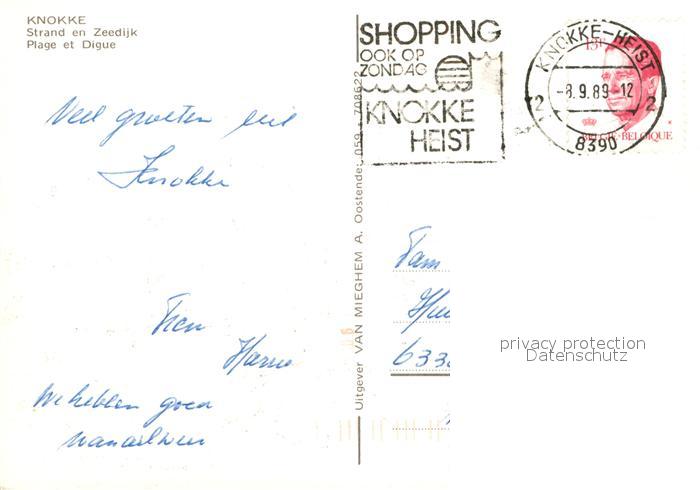 KNOKKE
Strand en Zeedijk
Plage et Digue
SHOPPING
OOK OP
ZONDAG
KNOKKE
HEIST
KNOKKE-HEIST
-8.9.89-12
2 2
8390
13F
BELGIE-BELGIQUE
Veel groeten uit
Knokke
We hebben goed
Uitgever VAN MIEGHEM A. Oostende, 059 - 708622
Fam
633
privacy protection
Datenschutz